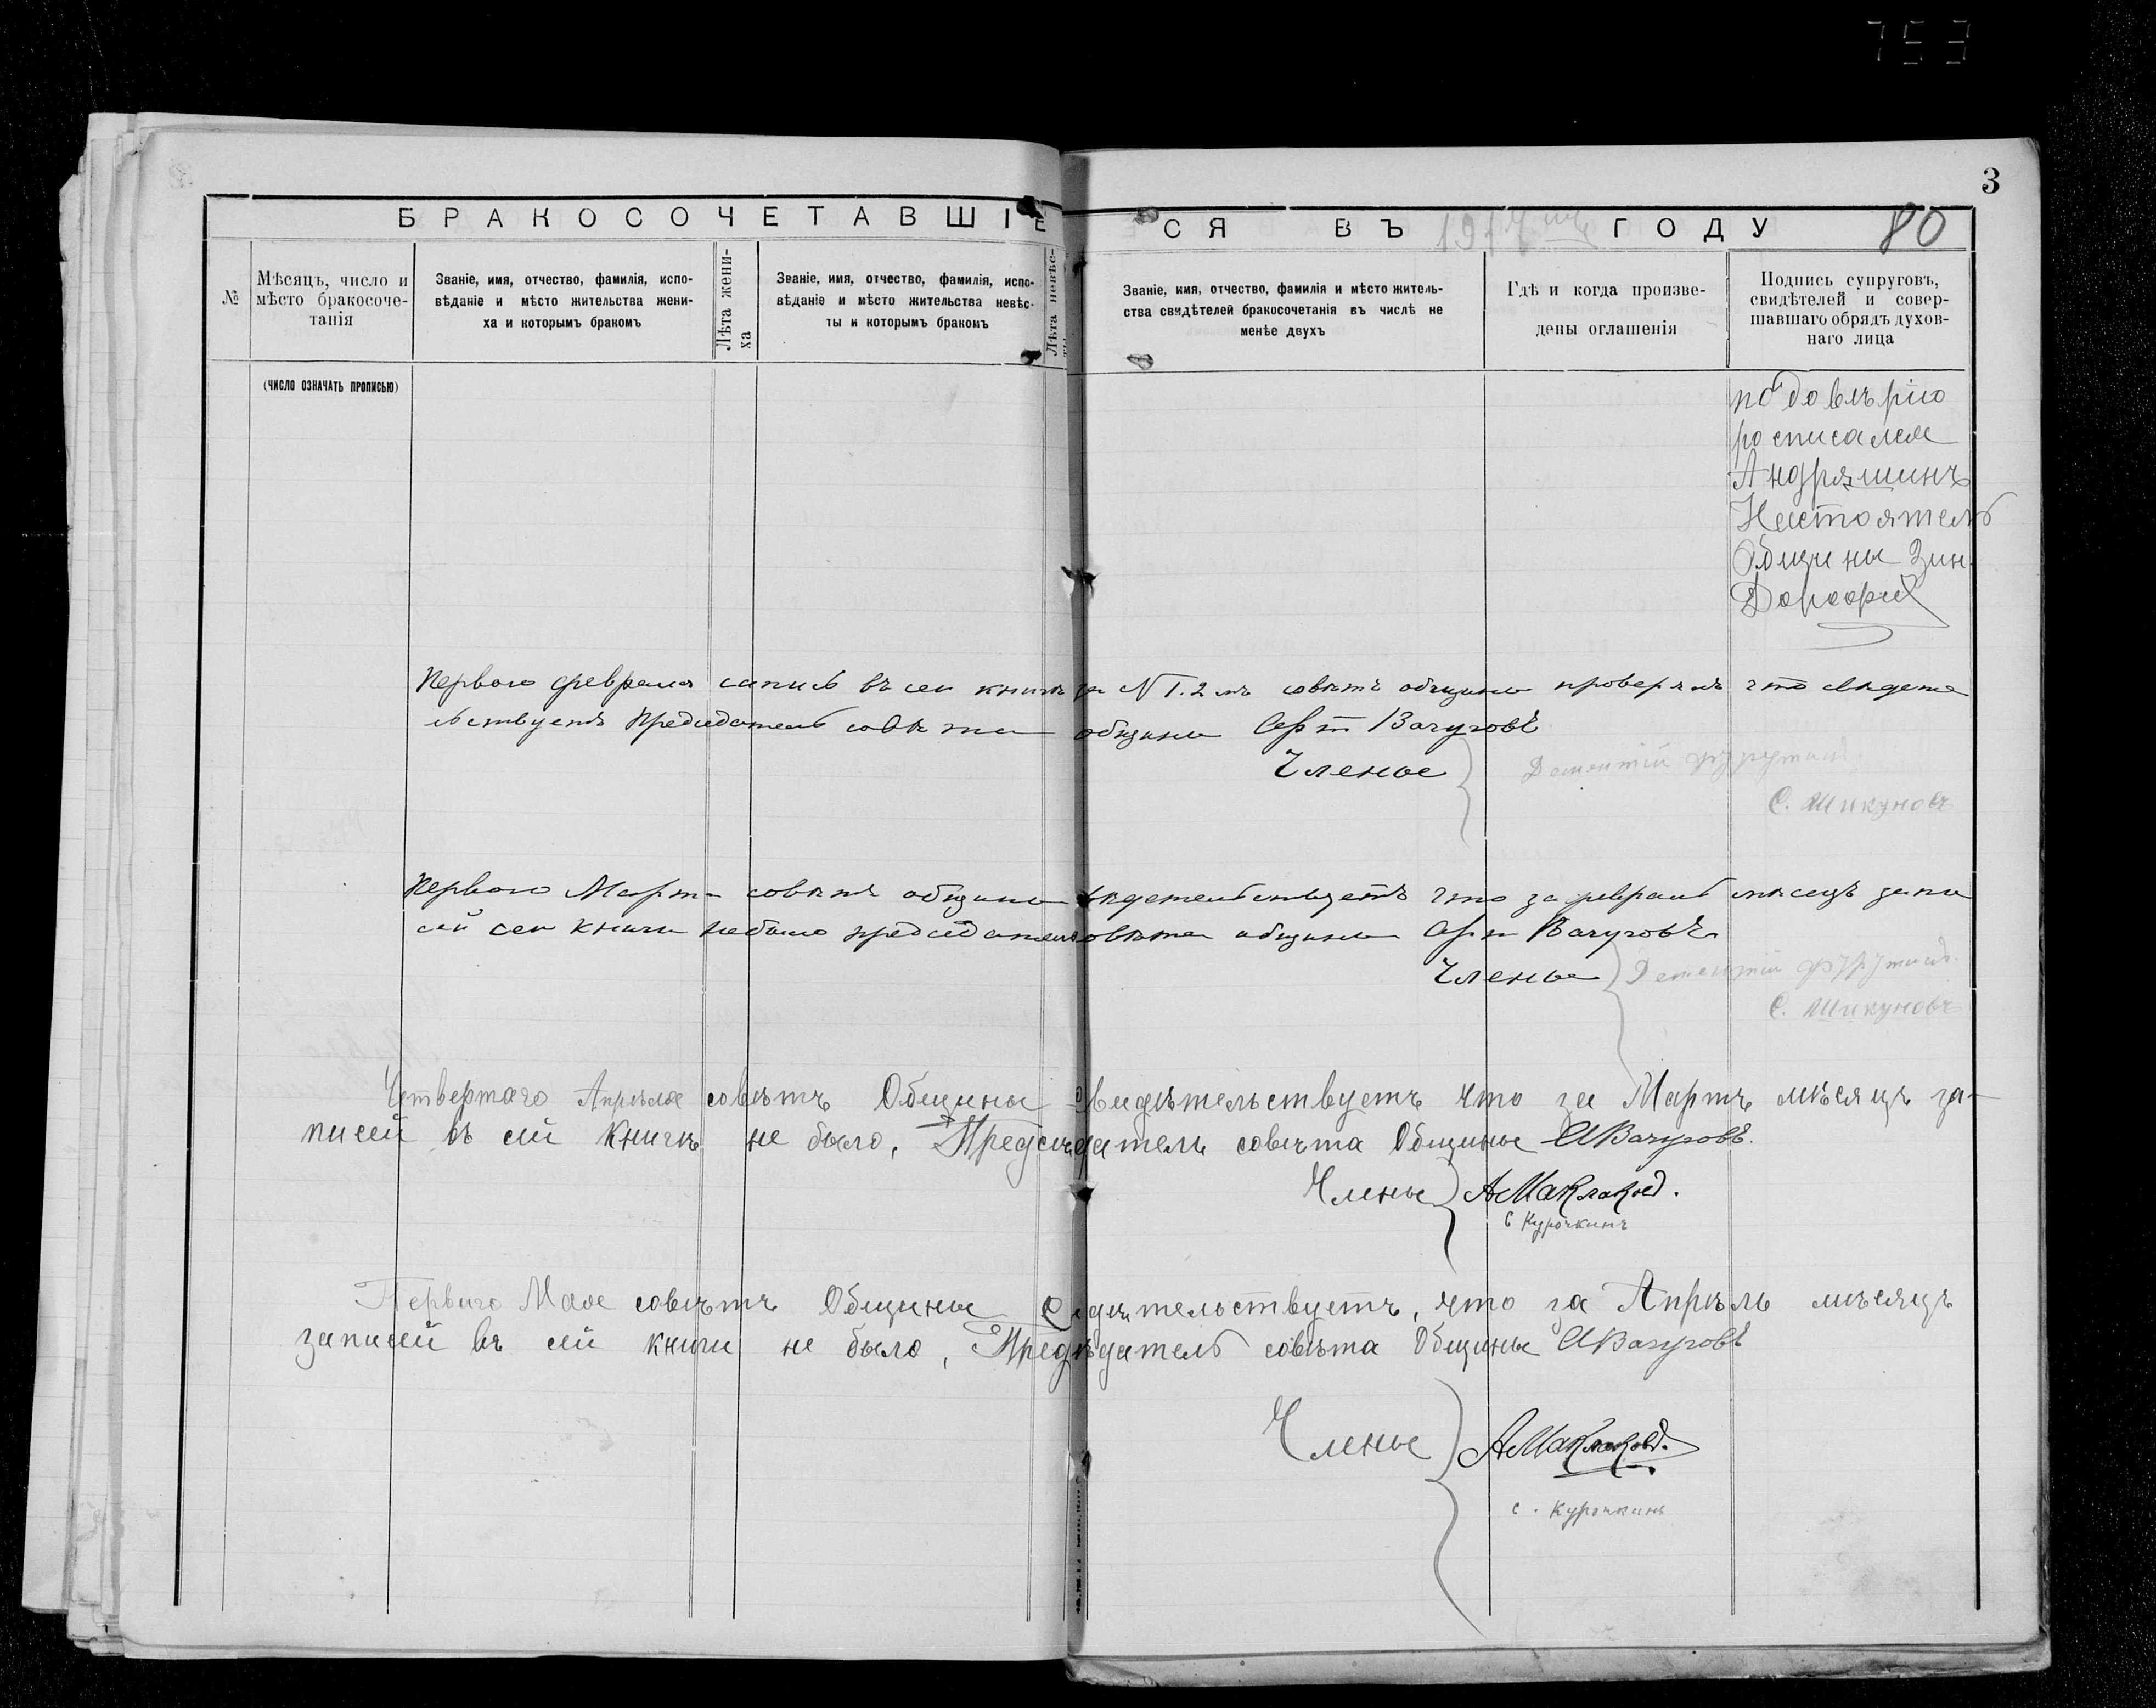 753
3
БРАКОСОЧЕТАВШІЕСЯ ВЪ 191 ГОДУ
80
№
Мѣсяцъ, число и мѣсто бракосоче-
танія
Званіе, имя, отчество, фамилія, испо-
вѣданіе и мѣсто жительства жени-
ха и которымъ бракомъ
Лѣта жени-
ха
Званіе, имя, отчество, фамилія, испо-
вѣданіе и мѣсто жительства невѣс-
ты и которымъ бракомъ
Лѣта невѣс-
Званіе, имя, отчество, фамилія и мѣсто житель-
ства свидѣтелей бракосочетанія въ числѣ не
менѣе двухъ
Гдѣ и когда произве-
дены оглашенія
Подпись супруговъ,
свидѣтелей и совер-
шавшаго обрядъ духов-
наго лица
(ЧИСЛО ОЗНАЧАТЬ ПРОПИСЬЮ)
по довѣрію
росписался
Андряшинъ
Настоятель
Общины Зин.
Первого февраля въ сей книги за N 1.2 совѣтъ общины проверялъ что свидете
льствуетъ председатель совѣта общины Арт Вачуговъ
Члены
Дементій
С. Шикуновъ
Первого Марта совѣтъ общины свидетельствуетъ что за февраль мѣсецъ запи
сей сей книги небыло председатель совѣта общины Арт Вачуговъ
Члены Дементій
С. Шикуновъ
Четвертаго Апрѣля совѣтъ Общины свидѣтельствуетъ что за Мартъ мѣсяцъ за-
писей въ сій книгѣ не было, Предсѣдатель совѣта Общины А Вачуговъ.
Члены А Маклаковъ.
С Курочкинъ
Перваго Мая совѣтъ Общины свидѣтельствуетъ, что за Апрѣль мѣсяцъ
записей въ сій книги не было, Предсѣдатель совѣта Общины А Вачуговъ
Члены А Маклаковъ.
С. Курочкинъ